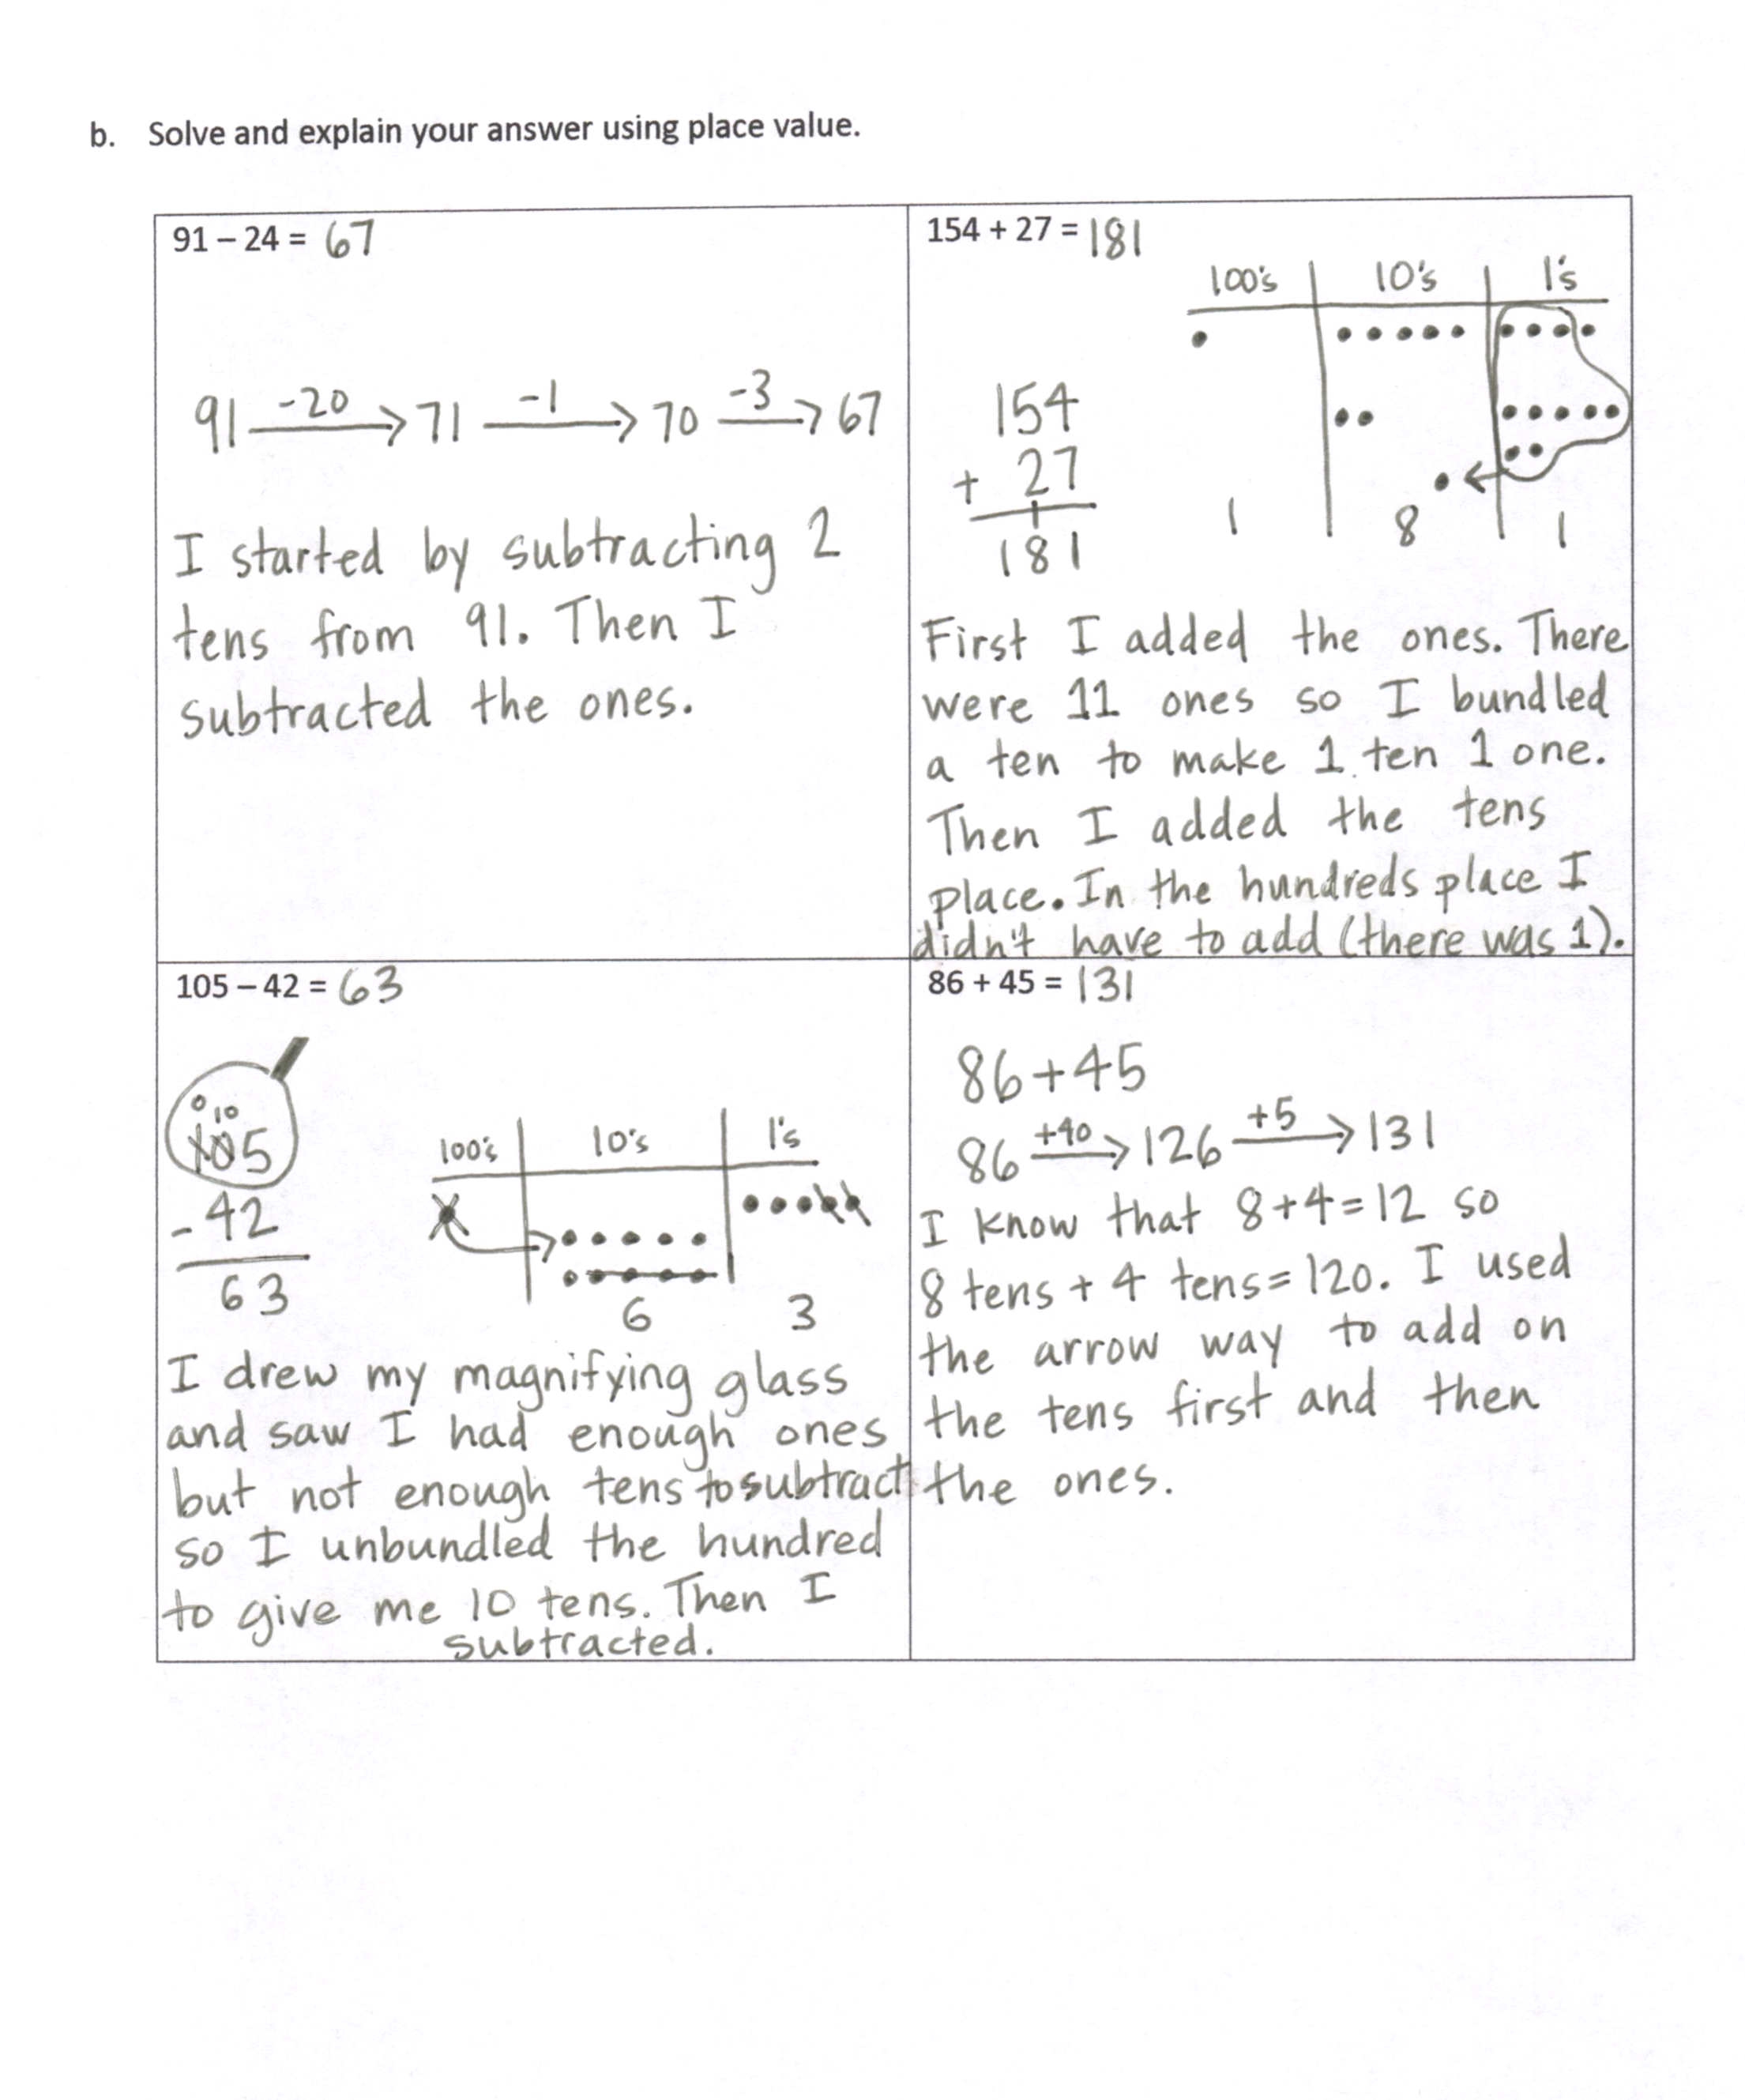 b. Solve and explain your answer using place value.
91 – 24 = 67
91 -20 → 71 -1 → 70 -3 → 67
I started by subtracting 2
tens from 91. Then I
subtracted the ones.
154 + 27 = 181
100's 10's 1's
154
+ 27
1
181
1 8 1
First I added the ones. There
were 11 ones so I bundled
a ten to make 1 ten 1 one.
Then I added the tens
place. In the hundreds place I
didn't have to add (there was 1).
105 – 42 = 63
0 10
105
- 42
63
100's 10's 1's
6 3
I drew my magnifying glass
and saw I had enough ones
but not enough tens to subtract
so I unbundled the hundred
to give me 10 tens. Then I
subtracted.
86 + 45 = 131
86+45
86 +40 → 126 +5 → 131
I know that 8+4=12 so
8 tens + 4 tens=120. I used
the arrow way to add on
the tens first and then
the ones.